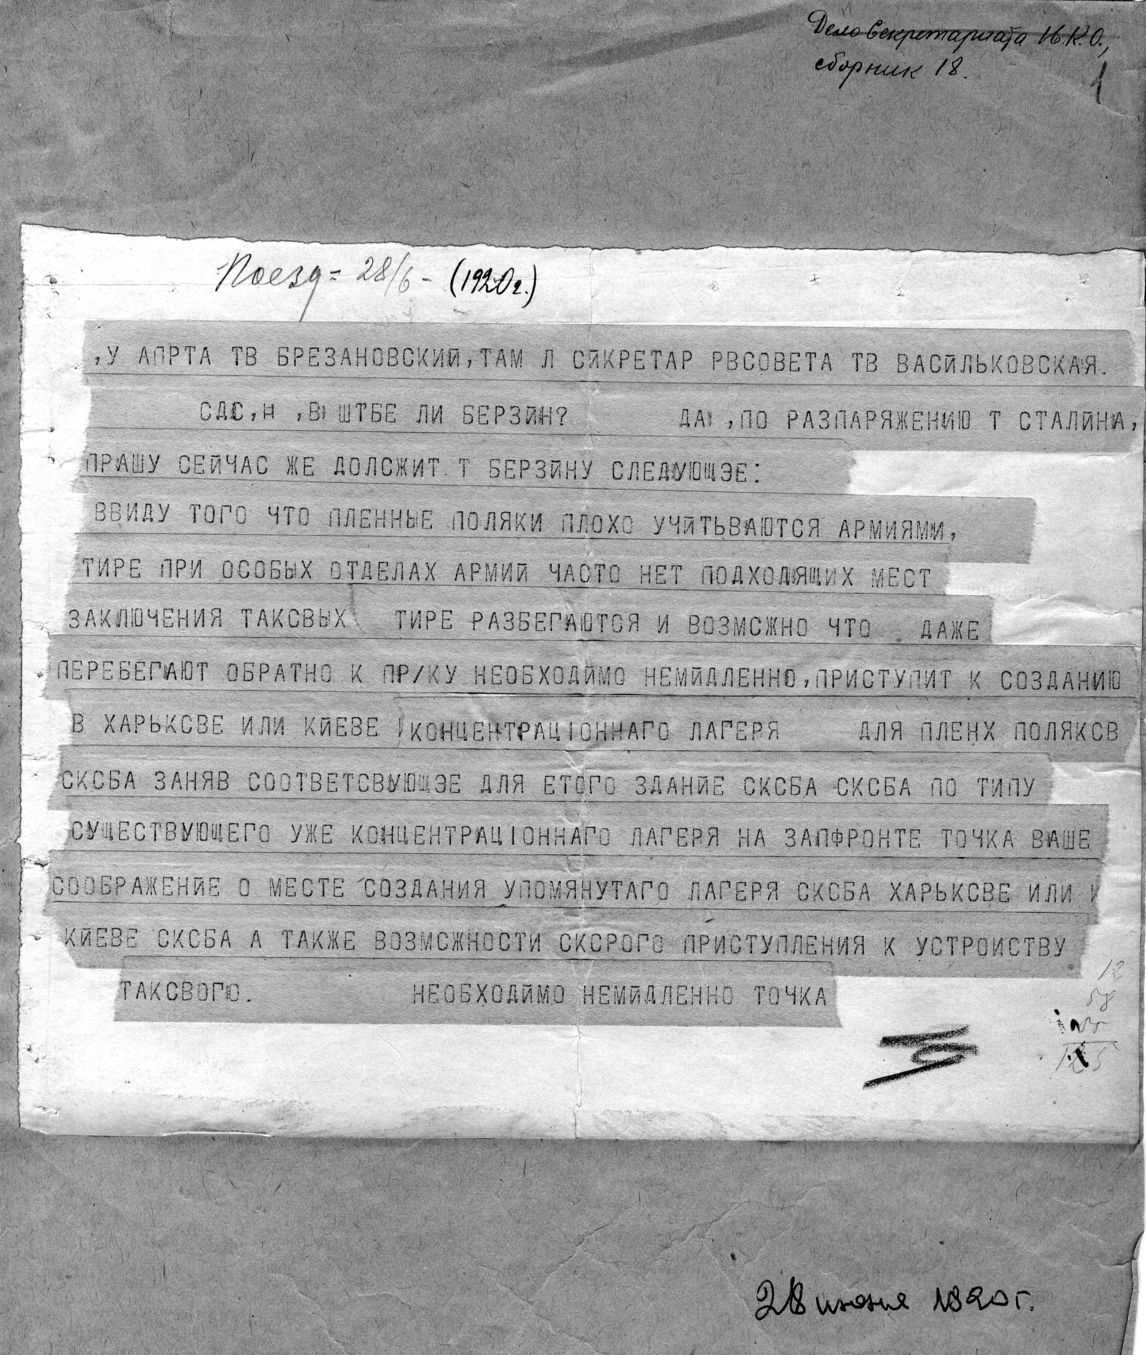 Дело Секретариата И.К.О.,
сборник 18.
1
Поезд = 28/6 - (1920г.)
,У АПРТА ТВ БРЕЗАНОВСКИЙ,ТАМ Л СЙКРЕТАР РВСОВЕТА ТВ ВАСЙЛЬКОВСКАЯ.
СДС,Н ,В ШТБЕ ЛИ БЕРЗЙН? ДА ,ПО РАЗПАРЯЖЕНИЮ Т СТАЛЙНА,
ПРАШУ СЕЙЧАС ЖЕ ДОЛСЖИТ Т БЕРЗЙНУ СЛЕДУЮЩЭЕ:
ВВИДУ ТОГО ЧТО ПЛЕННЫЕ ПОЛЯКИ ПЛОХО УЧЙТЬВАЮТСЯ АРМИЯМИ,
ТИРЕ ПРИ ОСОБЫХ ОТДЕЛАХ АРМИЙ ЧАСТО НЕТ ПОДХОДЯЩИХ МЕСТ
ЗАКЛЮЧЕНИЯ ТАКСВЫХ ТИРЕ РАЗБЕГАЮТСЯ И ВОЗМСЖНО ЧТО ДАЖЕ
ПЕРЕБЕГАЮТ ОБРАТНО К ПР/КУ НЕОБХОДЙМО НЕМЙДЛЕННО,ПРИСТУПИТ К СОЗДАНИЮ
В ХАРЬКСВЕ ИЛИ КЙЕВЕ КОНЦЕНТРАЦІОННАГО ЛАГЕРЯ ДЛЯ ПЛЕНХ ПОЛЯКСВ
СКСБА ЗАНЯВ СООТВЕТСВУЮЩЭЕ ДЛЯ ЕТОГО ЗДАНЙЕ СКСБА СКСБА ПО ТИПУ
СУЩЕСТВУЮЩЕГО УЖЕ КОНЦЕНТРАЦІОННАГО ЛАГЕРЯ НА ЗАПФРОНТЕ ТОЧКА ВАШЕ
СООБРАЖЕНЙЕ О МЕСТЕ СОЗДАНИЯ УПОМЯНУТАГО ЛАГЕРЯ СКСБА ХАРЬКСВЕ ИЛИ К
КЙЕВЕ СКСБА А ТАКЖЕ ВОЗМСЖНОСТИ СКСРОГО ПРИСТУПЛЕНИЯ К УСТРОИСТВУ
ТАКСВОГО. НЕОБХОДЙМО НЕМЙДЛЕННО ТОЧКА
12
58
28 июня 1920г.